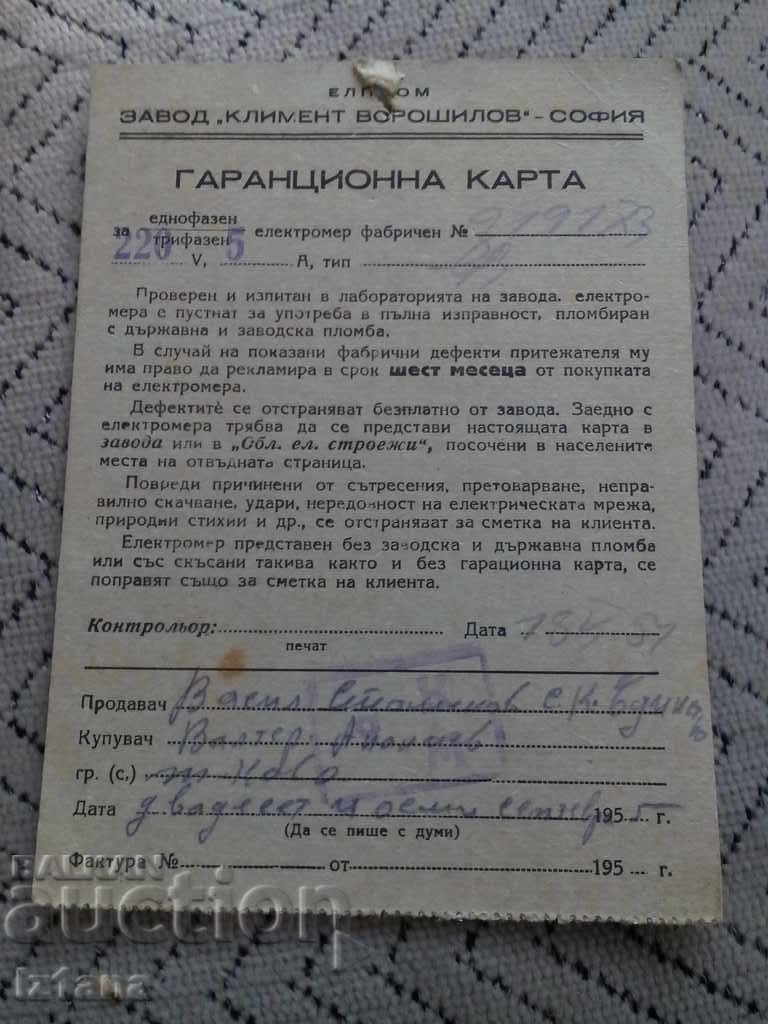 ЕЛПРОМ
ЗАВОД „КЛИМЕНТ ВОРОШИЛОВ" - СОФИЯ
ГАРАНЦИОННА КАРТА
за еднофазен
трифазен електромер фабричен №
220 V, 5 А, тип
Проверен и изпитан в лабораторията на завода. електро-
мера е пуснат за употреба в пълна изправност, пломбиран
с държавна и заводска пломба.
В случай на показани фабрични дефекти притежателя му
има право да рекламира в срок шест месеца от покупката
на електромера.
Дефектите се отстраняват безплатно от завода. Заедно с
електромера трябва да се представи настоящата карта в
завода или в „Обл. ел. строежи", посочени в населените
места на отвъдната страница.
Повреди причинени от сътресения, претоварване, непра-
вилно скачване, удари, нередовност на електрическата мрежа,
природни стихии и др., се отстраняват за сметка на клиента.
Електромер представен без заводска и държавна пломба
или със скъсани такива както и без гарационна карта, се
поправят също за сметка на клиента.
Контрольор:
Дата
печат
Продавач Васил
Купувач Валтер
гр. (с.)
Дата двадесет и осми септемвр 1955 г.
(Да се пише с думи)
Фактура № от 195 г.
BALKAN
auction
iztana